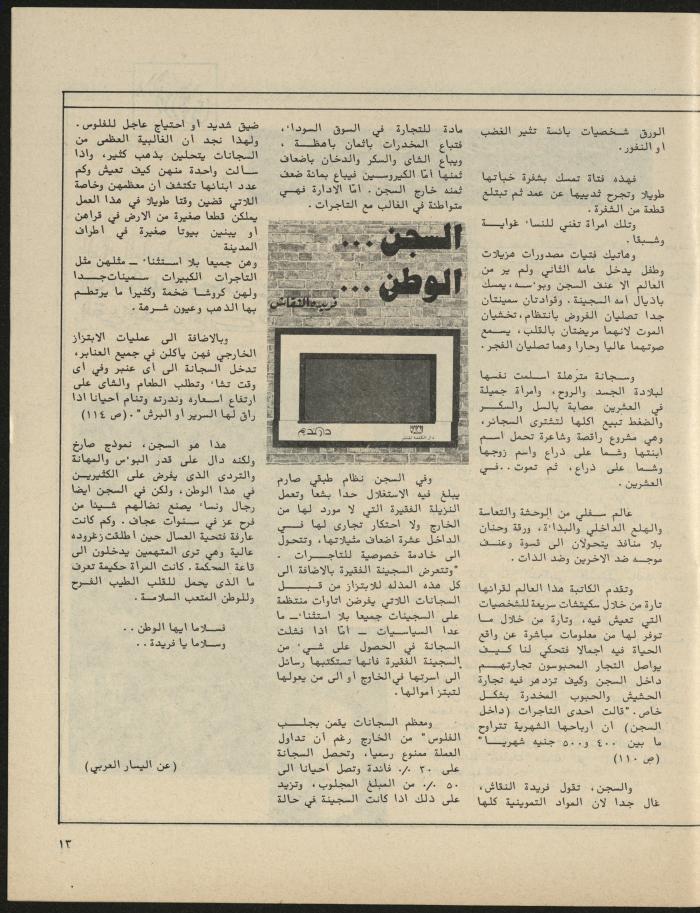 الورق شخصيات بائسة تثير الغضب
او النفور.
فهذه فتاة تمسك بشفرة خبأتها
طويلا وتجرح ثدييها عن عمد ثم تبتلع
قطعة من الشفرة.
وتلك امرأة تغني للنساء غوايــة
وشبقا.
وهاتيك فتيات مصدورات هزيلات
وطفل يدخل عامه الثاني ولم ير من
العالم الا عنف السجن وبؤسه، يمسك
باذيال امه السجينة. وقوادتان سمينتان
جدا تصليان الفروض بانتظام، تخشيان
الموت لانهما مريضتان بالقلب، يسمع
صوتهما عاليا وحارا وهما تصليان الفجر.
وسجانة مترهلة اسلمت نفسها
لبلادة الجسد والروح، وامرأة جميلة
في العشرين مصابة بالسل والسكــر
والضغط تبيع اكلها لتشترى السجائر،
وهي مشروع راقصة وشاعرة تحمل اسم
ابنتها وشما على ذراع واسم زوجها
وشما على ذراع، ثم تموت ..فـي
العشرين.
عالم سفلي من الوحشة والتعاسة
والهلع الداخلي والبذاءة، ورقة وحنان
بلا منافذ يتحولان الى قسوة وعنــف
موجه ضد الاخرين وضد الذات.
وتقدم الكاتبة هذا العالم لقرائها
تارة من خلال سكيتشات سريعة للشخصيات
التي تعيش فيه، وتارة من خلال مــا
توفر لها من معلومات مباشرة عن واقع
الحياة فيه اجمالا فتحكي لنا كــيــف
يواصل التجار المحبوسون تجارتهــم
داخل السجن وكيف تزدهر فيه تجارة
الحشيش والحبوب المخدرة بشكل
خاص. "قالت احدى التاجرات (داخل
السجن) ان ارباحها الشهرية تتراوح
ما بين ٤٠٠ و٥٠٠ جنيه شهريــا"
(ص ١١٠)
والسجن، تقول فريدة النقاش،
غال جدا لان المواد التموينية كلها
مادة للتجارة في السوق السوداء،
فتباع المخدرات باثمان باهظــة ،
ويباع الشاى والسكر والدخان باضعاف
ثمنها امّا الكيروسين فيباع بمائة ضعف
ثمنه خارج السجن. امّا الادارة فهــي
متواطئة في الغالب مع التاجرات .
السجن ...
الوطن ...
فريدة النقاش
دار النديم
دار الكلمة للنشر
وفي السجن نظام طبقي صارم
يبلغ فيه الاستغلال حدا بشعا وتعمل
النزيلة الفقيرة التي لا مورد لها من
الخارج ولا احتكار تجارى لها فــي
الداخل عشرة اضعاف مثيلاتها، وتتحول
الى خادمة خصوصية للتاجرات .
"وتتعرض السجينة الفقيرة بالاضافة الى
كل هذه المذله للابتزاز من قبــل
السجانات اللاتي يفرضن اتاوات منتظمة
على السجينات جميعا بلا استثناء ـ ما
عدا السياسيات ـ امّا اذا فشلت
السجانة في الحصول على شيء من
السجينة الفقيرة فانها تستكتبها رسائل
الى اسرتها في الخارج او الى من يعولها
لتبتز اموالها.
ومعظم السجانات يقمن بجلــب
الفلوس" من الخارج رغم أن تداول
العملة ممنوع رسميا، وتحصل السجانة
على ٣٠ ٪ فائدة وتصل احيانا الى
٥٠ ٪ من المبلغ المجلوب، وتزيد
على ذلك اذا كانت السجينة في حالة
ضيق شديد او احتياج عاجل للفلوس.
ولهذا نجد ان الغالبية العظمى من
السجانات يتحلين بذهب كثير، واذا
سألت واحدة منهن كيف تعيش وكم
عدد ابنائها تكتشف ان معظمهن وخاصة
اللاتي قضين وقتا طويلا في هذا العمل
يملكن قطعا صغيرة من الارض في قراهن
او يبنين بيوتا صغيرة في اطراف
المدينة
وهن جميعا بلا استثناء ـ مثلهن مثل
التاجرات الكبيرات سمينات جــدا
ولهن كروشا ضخمة وكثيرا ما يرتطـم
بها الذهب وعيون شرهة.
وبالاضافة الى عمليات الابتزاز
الخارجي فهن يأكلن في جميع العنابر،
تدخل السجانة الى أى عنبر وفي أى
وقت تشاء وتطلب الطعام والشاى على
ارتفاع اسعاره وندرته وتنام احيانا اذا
راق لها السرير او البرش "٠(ص ١١٤)
هذا هو السجن، نموذج صارخ
ولكنه دال على قدر البؤس والمهانة
والتردى الذى يفرض على الكثيريــن
في هذا الوطن، ولكن في السجن ايضا
رجال ونساء يصنع نضالهم شيئا من
فرح عز في سنوات عجاف. وكم كانت
عارفة فتحية العسال حين اطلقت زغروده
عالية وهي ترى المتهمين يدخلون الى
قاعة المحكمة. كانت المرأة حكيمة تعرف
ما الذى يحمل للقلب الطيب الفــرح
وللوطن المتعب السلامــة.
فسلاما ايها الوطن ..
وسلاما يا فريدة ..
(عن اليسار العربي)
١٣